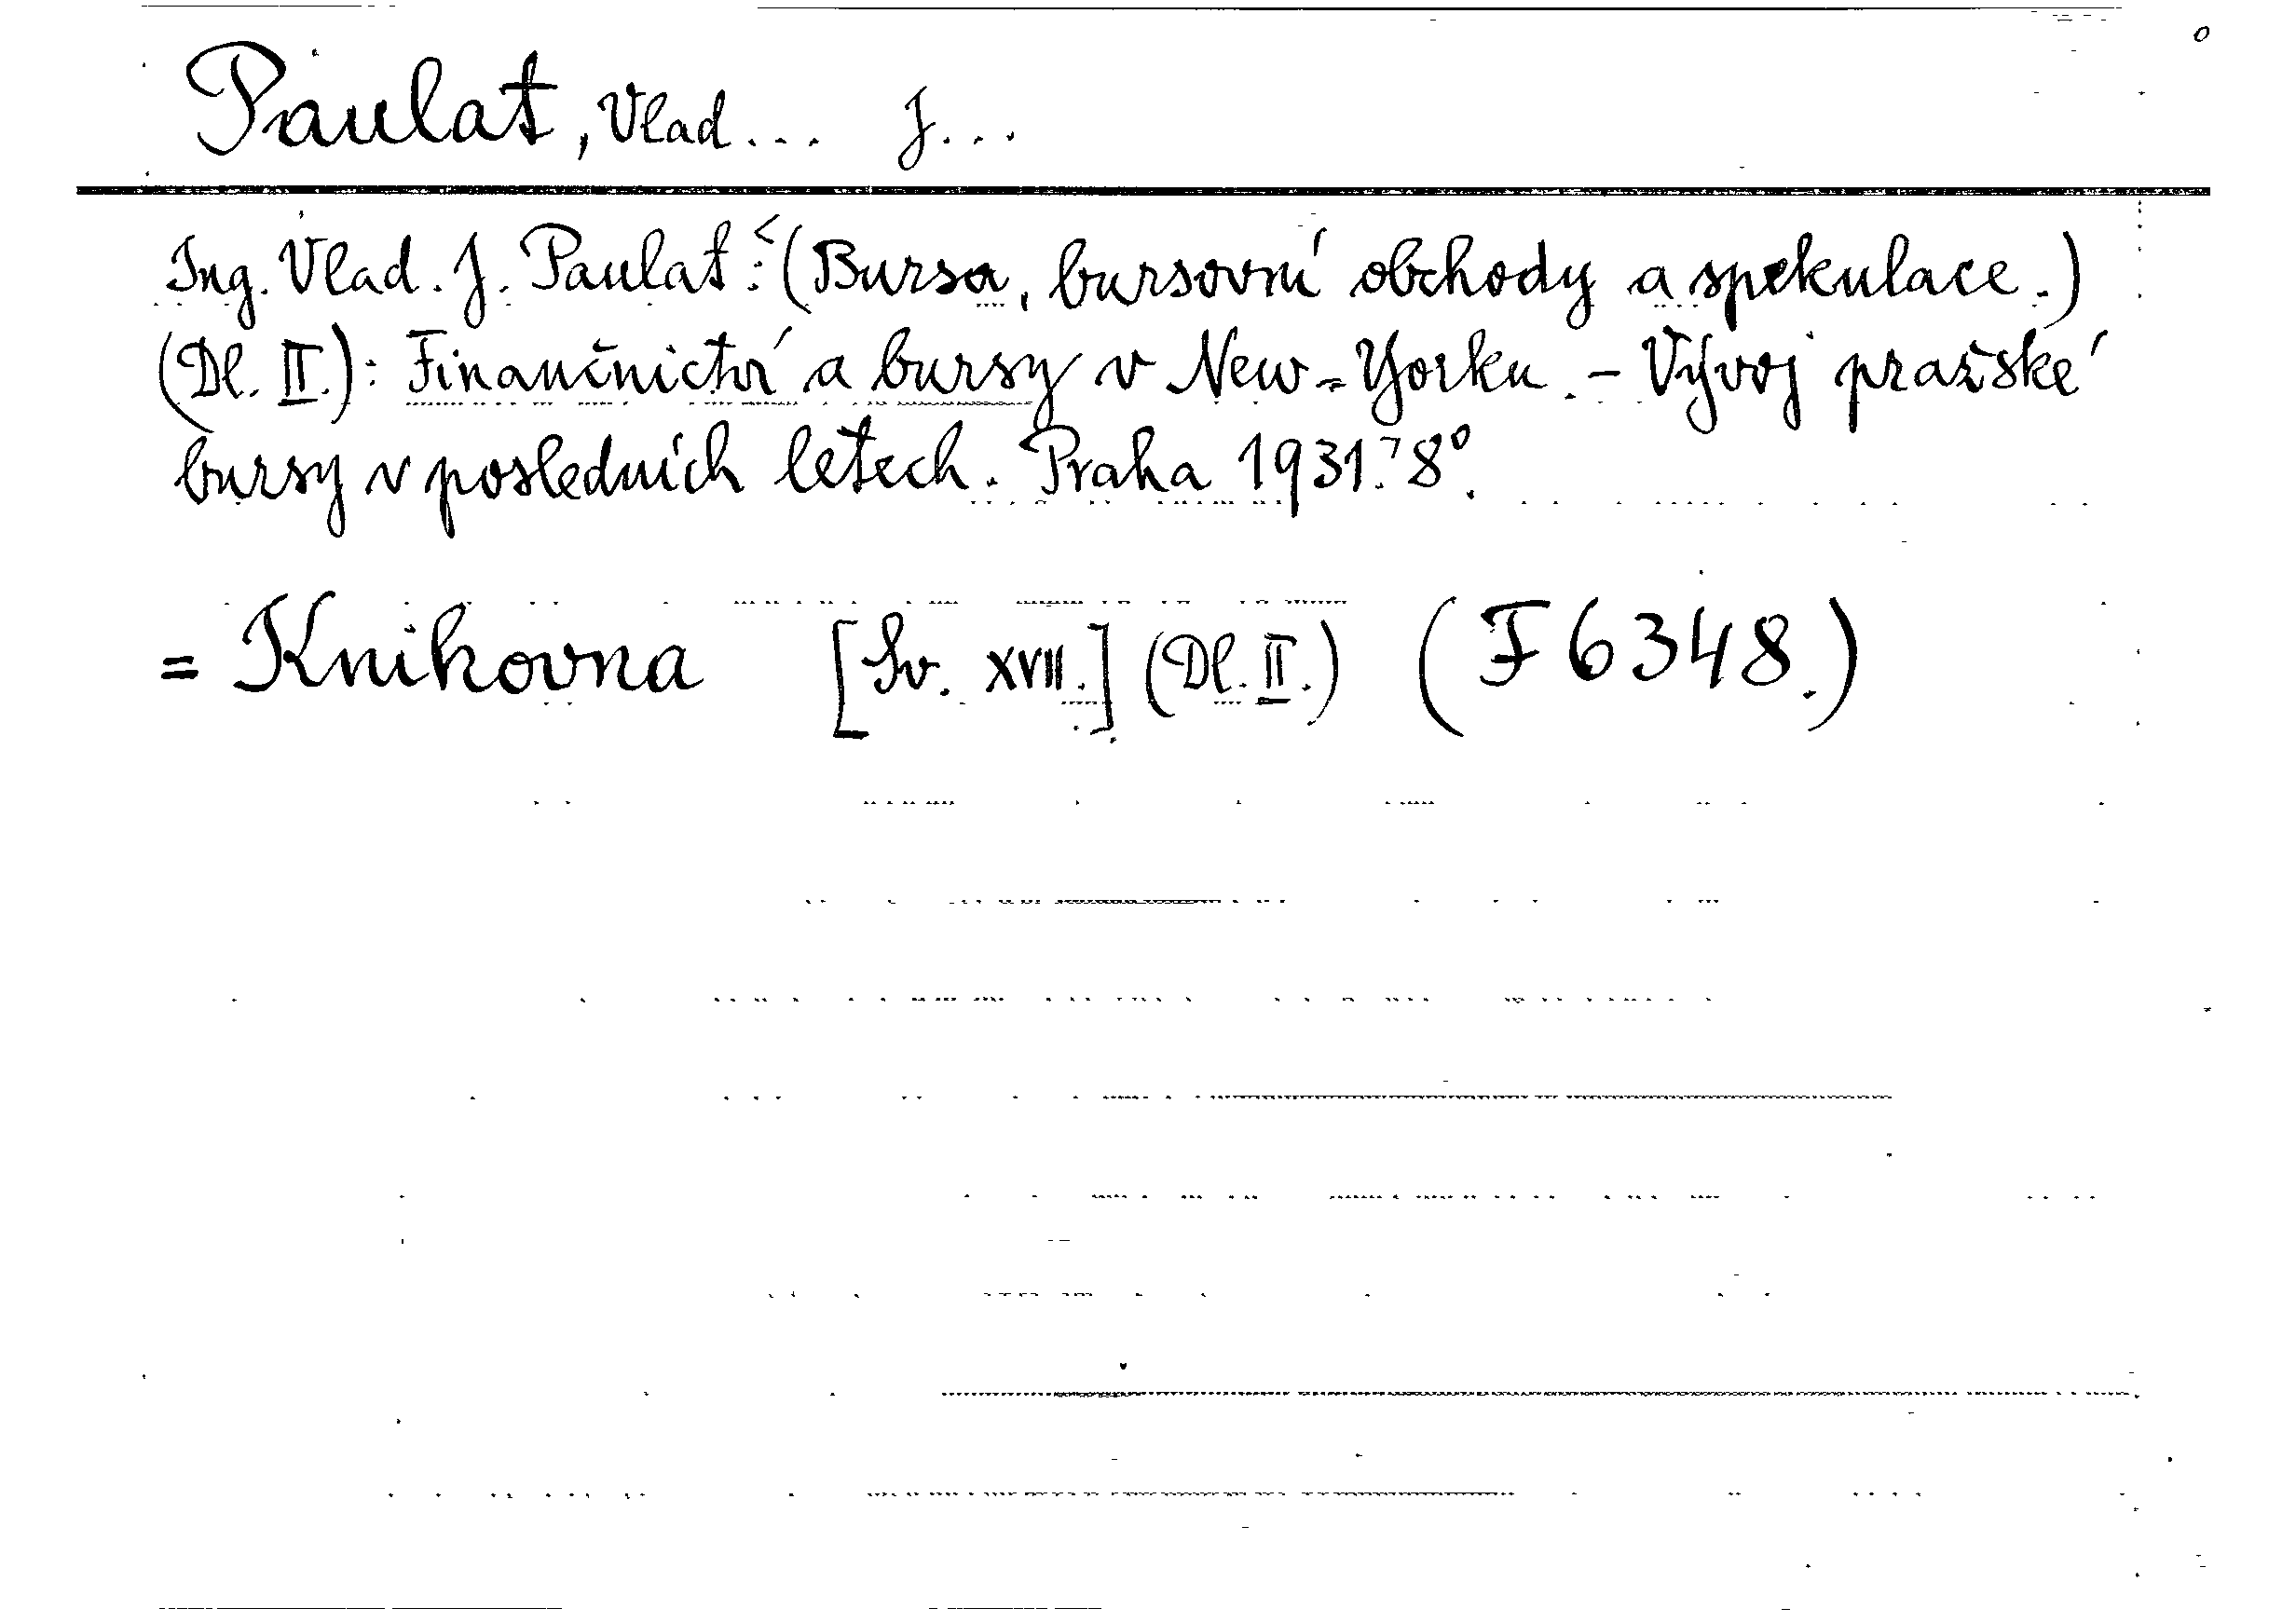 Paulat, Vlad... J...
Ing. Vlad. J. Paulat: <(Bursa, bursovní obchody a spekulace.)
(Dl. II.): Finančnictví a bursy v New-Yorku. - Vývoj pražské
bursy v posledních letech. Praha 1931.> 8°.
= Knihovna [Sv. XVII.] (Dl. II.) (F 6348.)